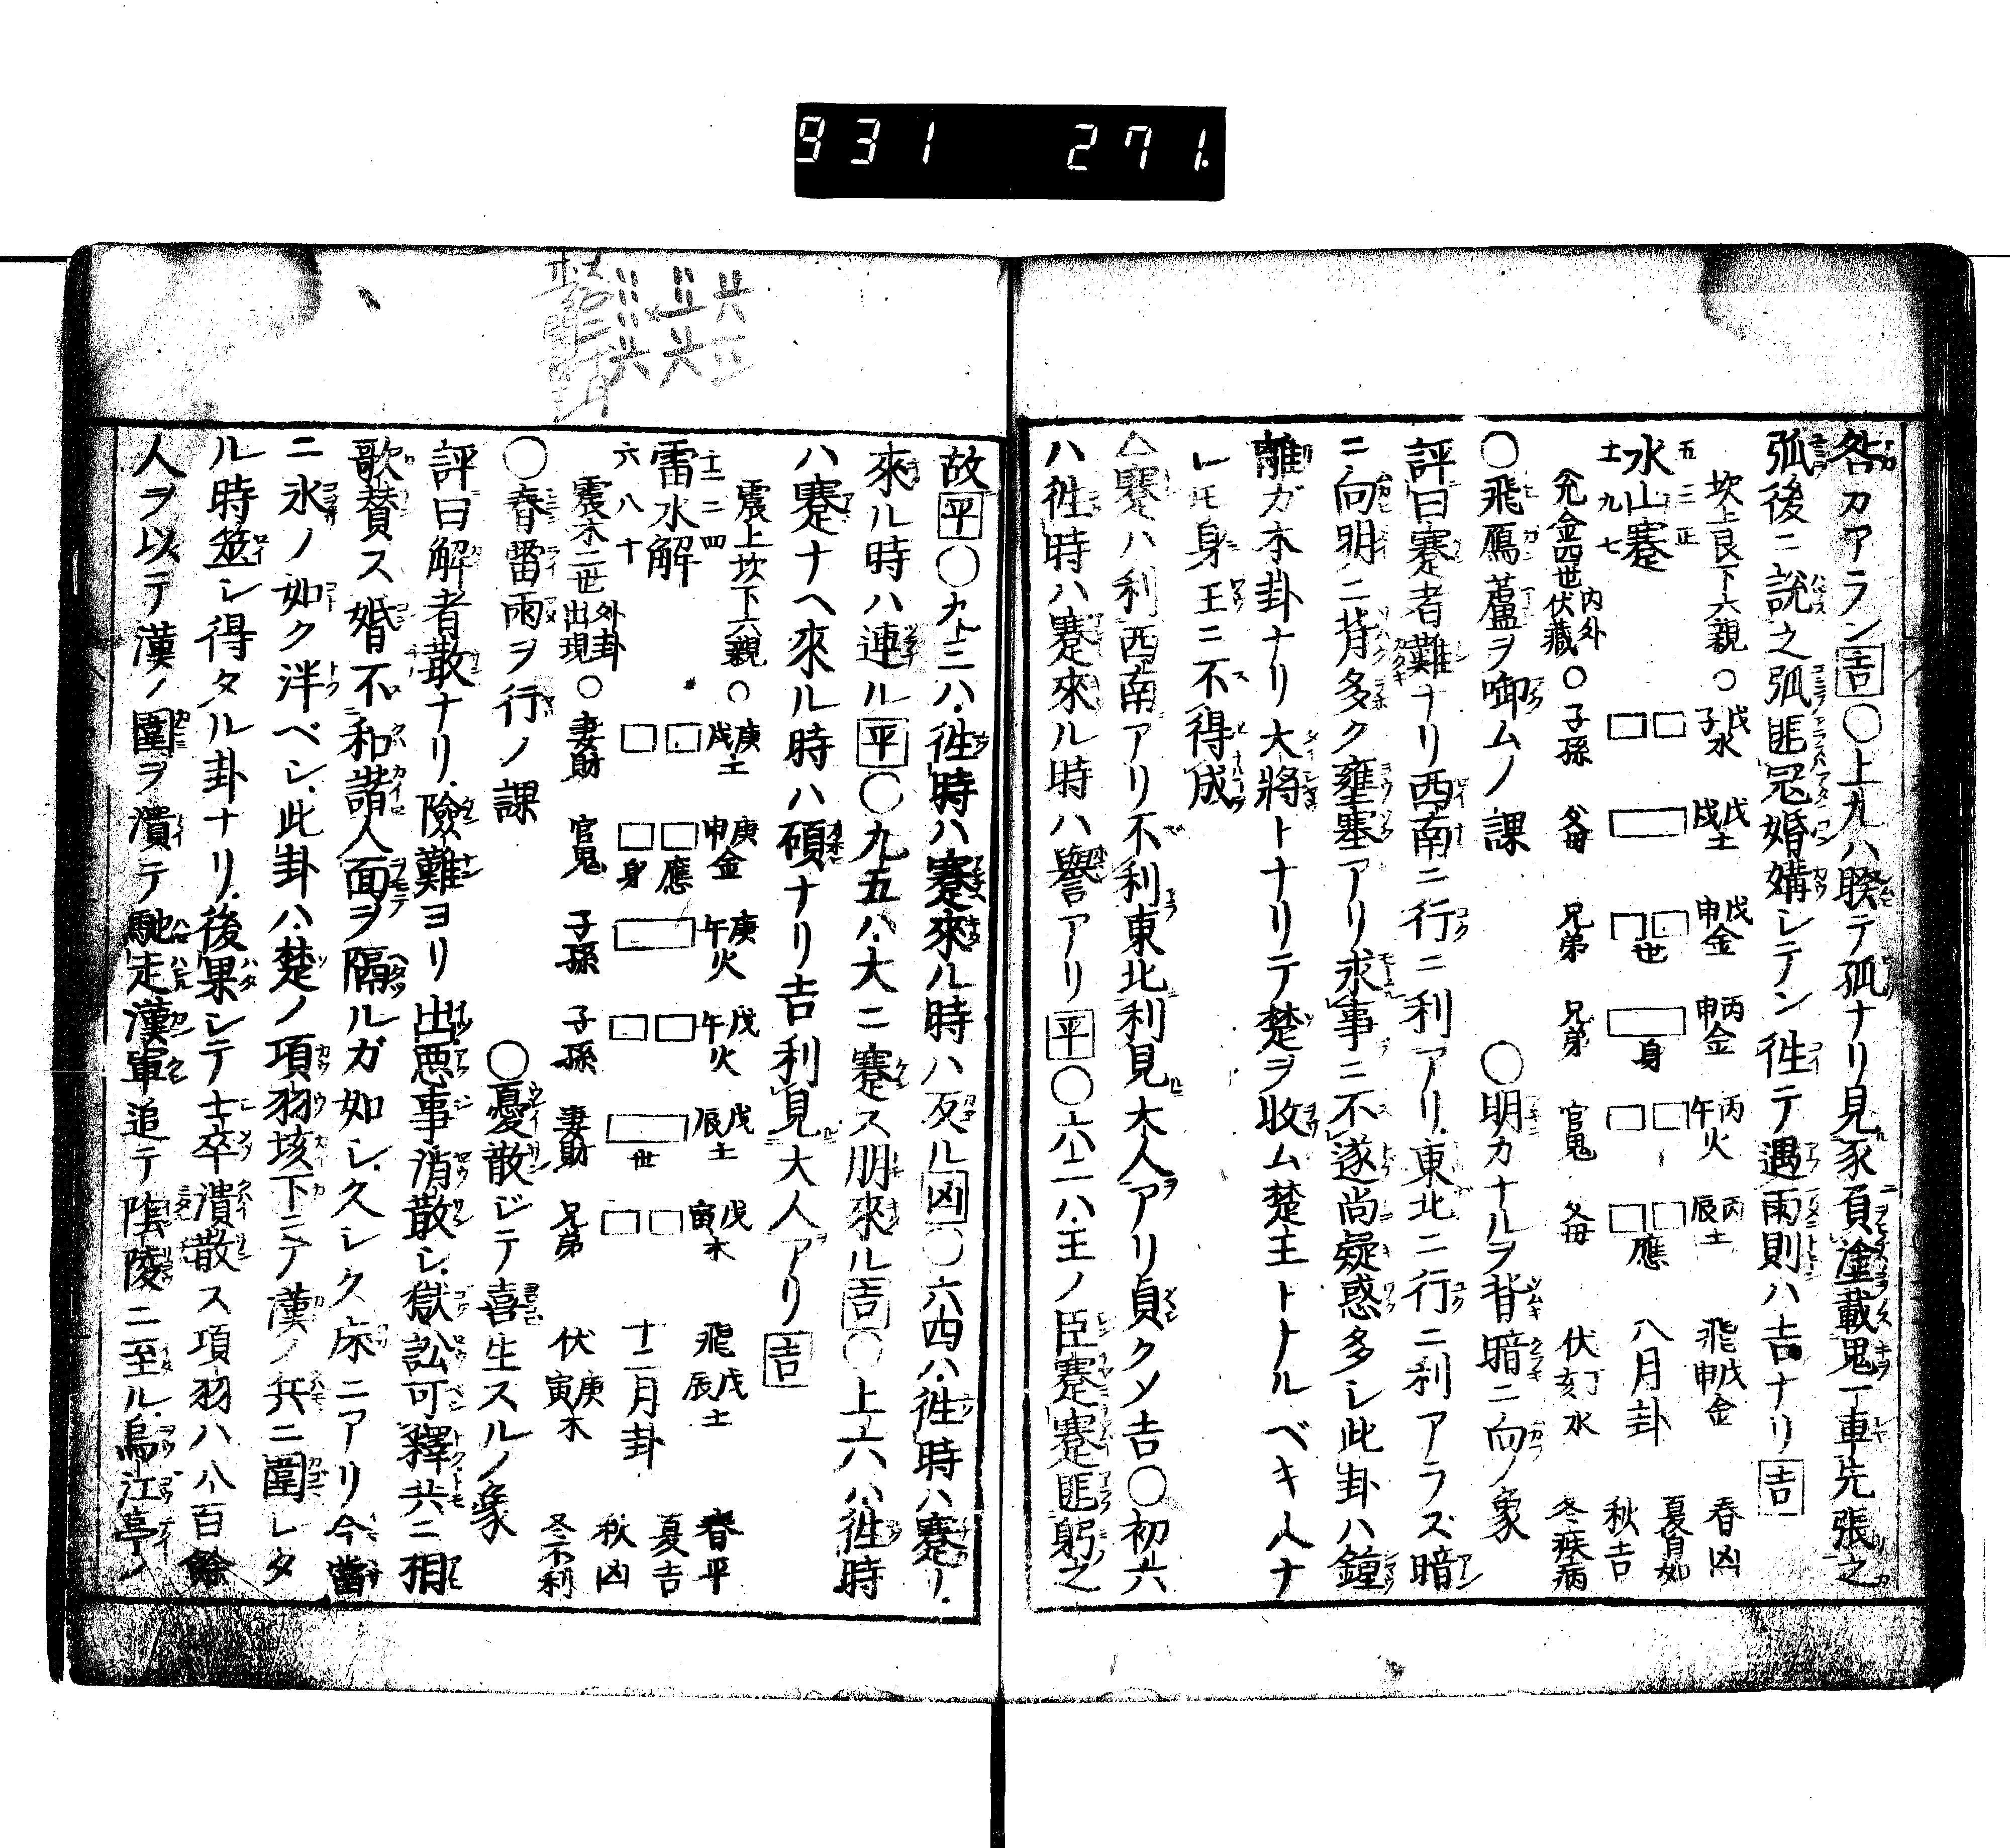 931 271.
咎カアラン吉〇上九ハ睽テ孤ナリ見豕負塗載鬼一車先張之
弧後ニ説之弧匪冦婚媾シテテン徃テ遇雨則ハ吉ナリ吉
坎上艮下六親〇
五三正
水山蹇
十一九七
兊金四世内外伏藏〇子孫 父母 兄弟 兄弟 官鬼 父母
戊子水 戊戌土 戊申金 丙申金 丙午火 丙辰土
世 身 應
飛戊申金
八月卦
伏丁亥水
春凶
夏自如
秋吉
冬疾病
〇飛鴈蘆ヲ啣ムノ課 〇明カナルヲ背暗ニ向ノ象
評曰蹇者難ナリ西南ニ行ニ利アリ東北ニ行ニ利アラズ暗
ニ向明ニ背多ク壅塞アリ求事ニ不遂尚疑惑多シ此卦ハ鐘
離ガ本卦ナリ大將トナリテ楚ヲ收ム楚王トナルベキ人ナ
レモ身王ニ不得成
△蹇ハ利西南アリ不利東北利見大人アリ貞クメ吉〇初六
ハ徃時ハ蹇來ル時ハ譽アリ平〇六二ハ王ノ臣蹇蹇匪躬之
故平〇九三ハ徃時ハ蹇來ル時ハ反ル凶〇六四ハ徃時ハ蹇ノ
來ル時ハ連ル平〇九五ハ大ニ蹇ス朋來ル吉〇上六ハ徃時
ハ蹇ナヘ來ル時ハ碩ナリ吉利見大人アリ吉
震上坎下六親〇
十二二四
雷水解
六八十
震木二世外卦出現〇妻財 官鬼 子孫 子孫 妻財 兄弟
庚戌土 庚申金 庚午火 戊午火 戊辰土 戊寅木
應 身 世
飛戊辰土
十二月卦
伏庚寅木
春平
夏吉
秋凶
冬不利
〇春雷雨ヲ行ノ課 〇憂散ジテ喜生スルノ象
評曰解者散ナリ險難ヨリ出悪事消散シ獄訟可釋共ニ相
歌賛ス婚不和諧人面ヲ隔ルガ如シ久シク床ニアリ今當
ニ氷ノ如ク泮ベシ此卦ハ楚ノ項羽垓下ニテ漢ノ兵ニ圍レタ
ル時筮シ得タル卦ナリ後果シテ士卒潰散ス項羽ハ八百餘
人ヲ以テ漢ノ圍ヲ潰テ馳走漢軍追テ陰陵ニ至ル烏江亭ノ